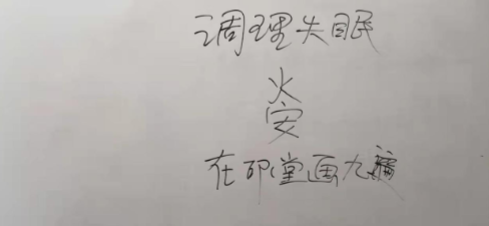 调理失眠
火
安
在印堂画九